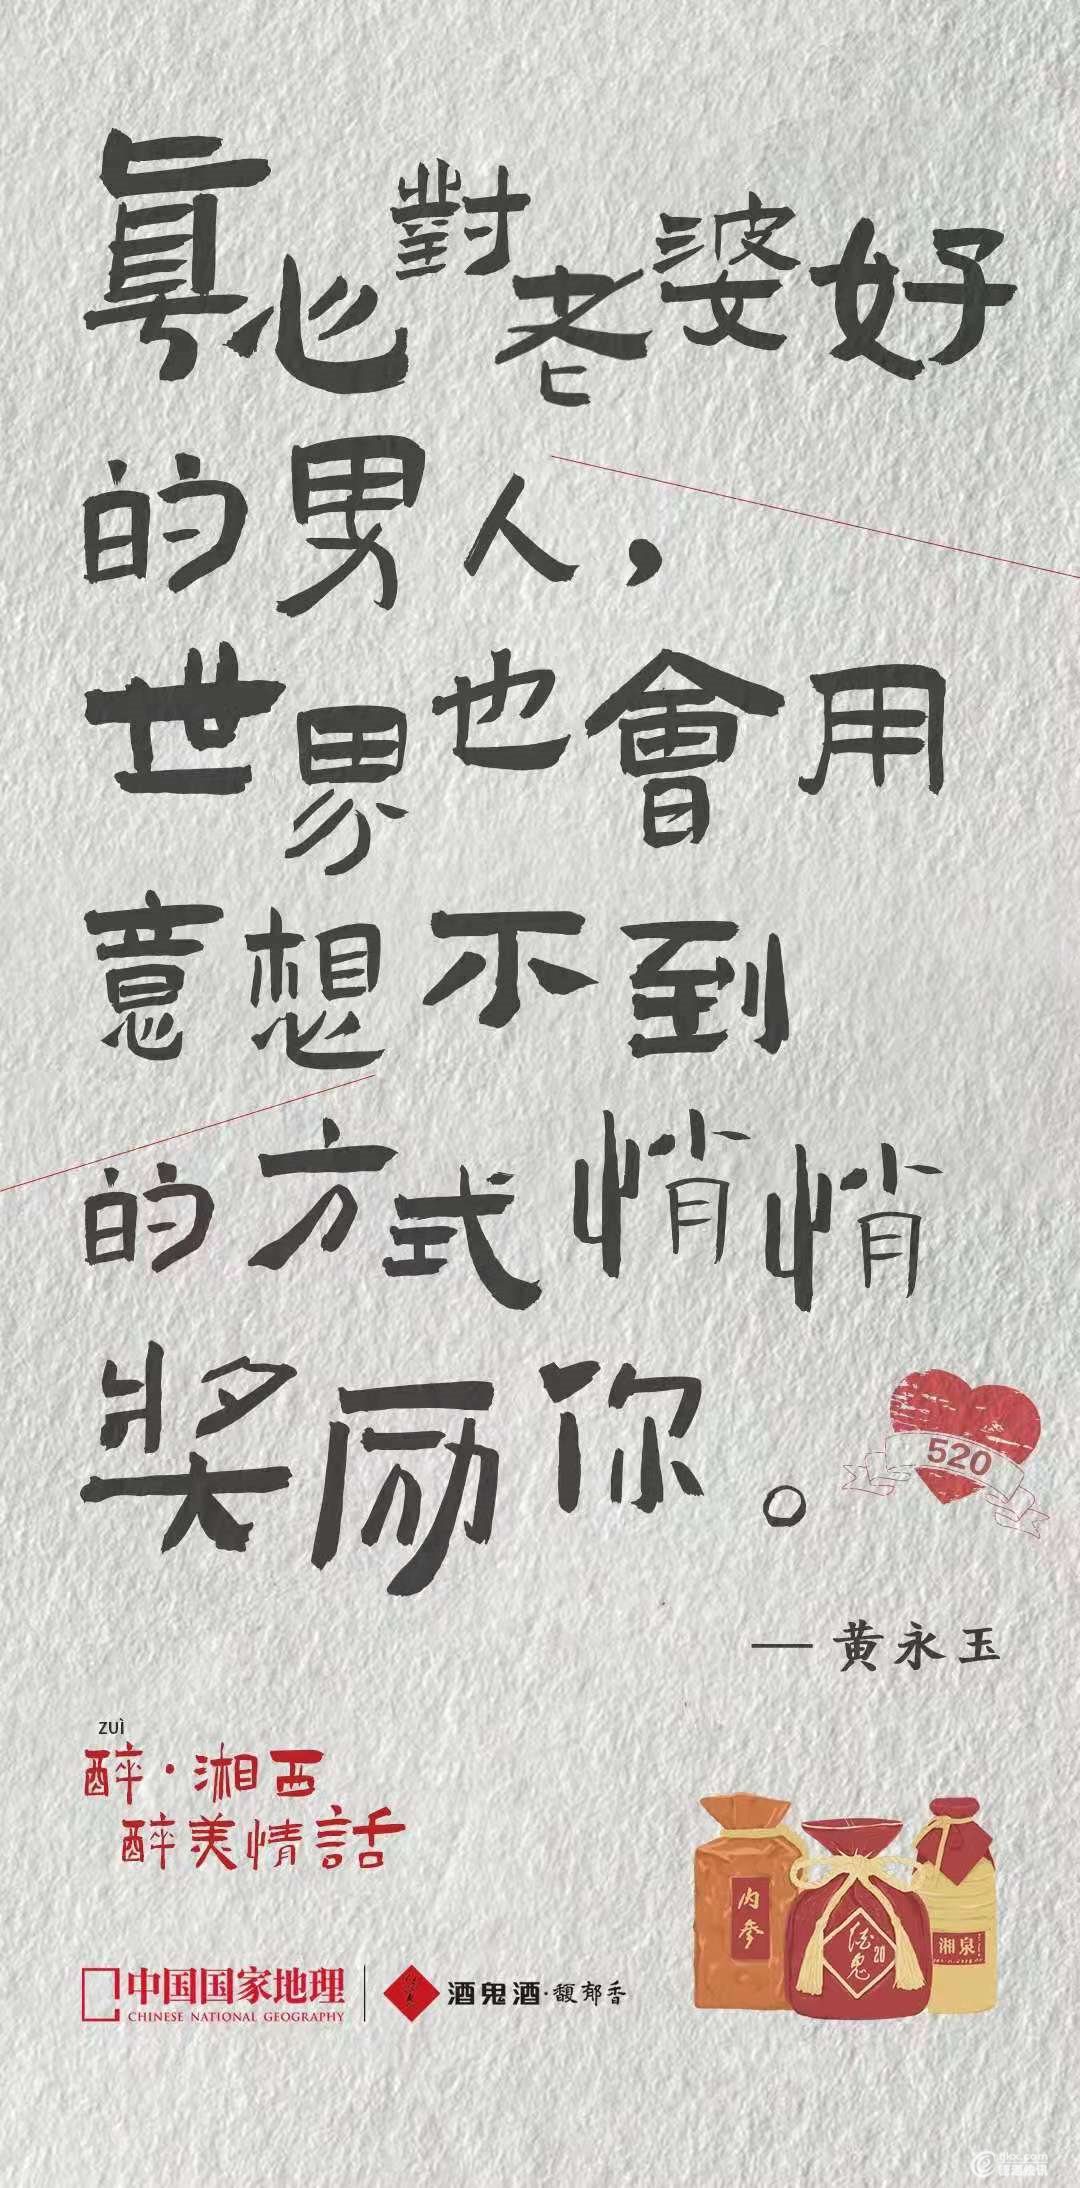 真心對老婆好
的男人，
世界也會用
意想不到
的方式悄悄
奖励你。
520
— 黄永玉
ZUÌ
醉·湘西
醉美情話
内参
酒鬼
20
湘泉
中国国家地理
CHINESE NATIONAL GEOGRAPHY
酒鬼酒·馥郁香